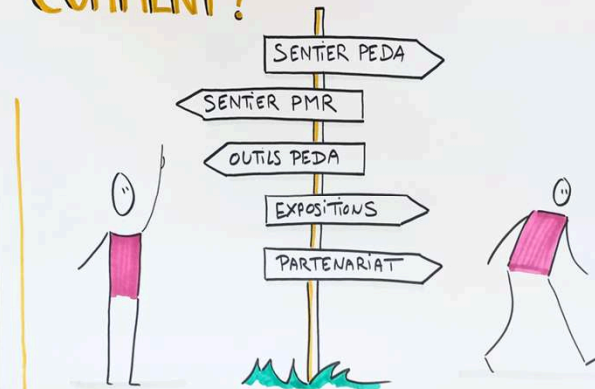 COMMENT ?
SENTIER PEDA
SENTIER PMR
OUTILS PEDA
EXPOSITIONS
PARTENARIAT